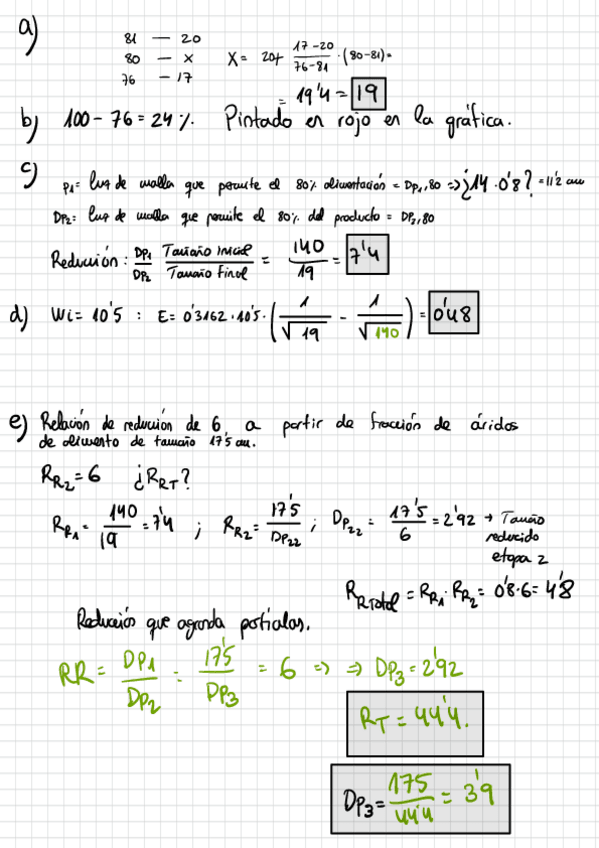 a)
81 — 20
80 — x    X = 20+ 17-20/76-81 · (80-81) =
76 — 17
= 19'4 = 19
b) 100 - 76 = 24 %. Pintado en rojo en la gráfica.
c)
P1= luz de malla que permite el 80% alimentación = Dp1,80 => ¿14 · 0'8? = 11'2 cm
DP2= luz de malla que permite el 80% del producto = DP2,80
Reducción: DP1/DP2 Tamaño inicial/Tamaño final = 140/19 = 7'4
d) Wi = 10'5 : E = 0'3162 · 10'5 · (1/√19 - 1/√140) = 0'48
e) Relación de reducción de 6, a partir de fracción de áridos
de alimento de tamaño 17'5 cm.
RR2 = 6 ¿RRT?
RR1 = 140/19 = 7'4 ; RR2 = 17'5/DP22 ; DP22 = 17'5/6 = 2'92 → Tamaño
reducido
etapa 2
RRTotal = RR1 · RR2 = 0'8 · 6 = 4'8
Reducción que agranda
RR = DP1/DP2 = 17'5/DP3 = 6 => => DP3 = 2'92
RT = 44'4.
DP3 = 175/44'4 = 3'9